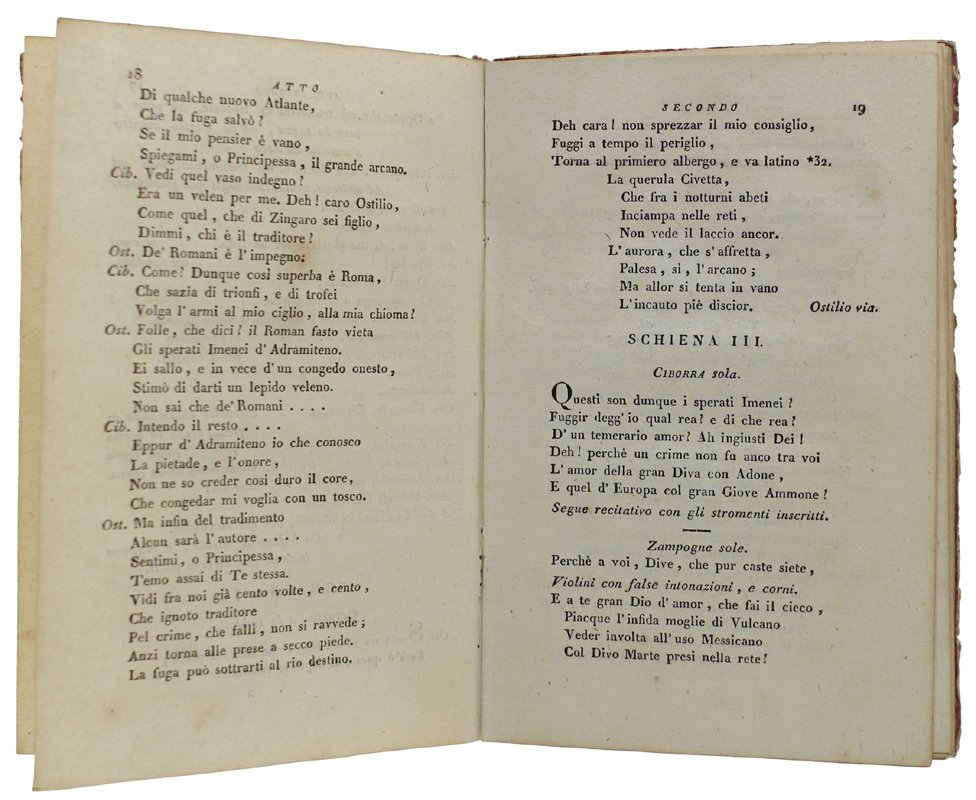 18
ATTO
Di qualche nuovo Atlante,
Che la fuga salvò?
Se il mio pensier è vano,
Spiegami, o Principessa, il grande arcano.
Cib. Vedi quel vaso indegno?
Era un velen per me. Deh! caro Ostilio,
Come quel, che di Zingaro sei figlio,
Dimmi, chi è il traditore?
Ost. De' Romani è l'impegno:
Cib. Come? Dunque così superba è Roma,
Che sazia di trionfi, e di trofei
Volga l'armi al mio ciglio, alla mia chioma?
Ost. Folle, che dici? il Roman fasto vieta
Gli sperati Imenei d'Adramiteno.
Ei sallo, e in vece d'un congedo onesto,
Stimò di darti un lepido veleno.
Non sai che de' Romani ....
Cib. Intendo il resto ....
Eppur d'Adramiteno io che conosco
La pietade, e l'onore,
Non ne so creder così duro il core,
Che congedar mi voglia con un tosco.
Ost. Ma infin del tradimento
Alcun sarà l'autore ....
Sentimi, o Principessa,
Temo assai di Te stessa.
Vidi fra noi già cento volte, e cento,
Che ignoto traditore
Pel crime, che falli, non si ravvede;
Anzi torna alle prese a secco piede.
La fuga può sottrarti al rio destino.
SECONDO
19
Deh cara! non sprezzar il mio consiglio,
Fuggi a tempo il periglio,
Torna al primiero albergo, e va latino *32.
La querula Civetta,
Che fra i notturni abeti
Inciampa nelle reti,
Non vede il laccio ancor.
L'aurora, che s'affretta,
Palesa, sì, l'arcano;
Ma allor si tenta in vano
L'incauto piè discior. Ostilio via.
SCHIENA III.
CIBORRA sola.
Questi son dunque i sperati Imenei?
Fuggir degg'io qual rea? e di che rea?
D'un temerario amor? Ah ingiusti Dei!
Deh! perchè un crime non fu anco tra voi
L'amor della gran Diva con Adone,
E quel d'Europa col gran Giove Ammone?
Segue recitativo con gli stromenti inscritti.
Zampogne sole.
Perchè a voi, Dive, che pur caste siete,
Violini con false intonazioni, e corni.
E a te gran Dio d'amor, che fai il cieco,
Piacque l'infida moglie di Vulcano
Veder involta all'uso Messicano
Col Divo Marte presi nella rete?